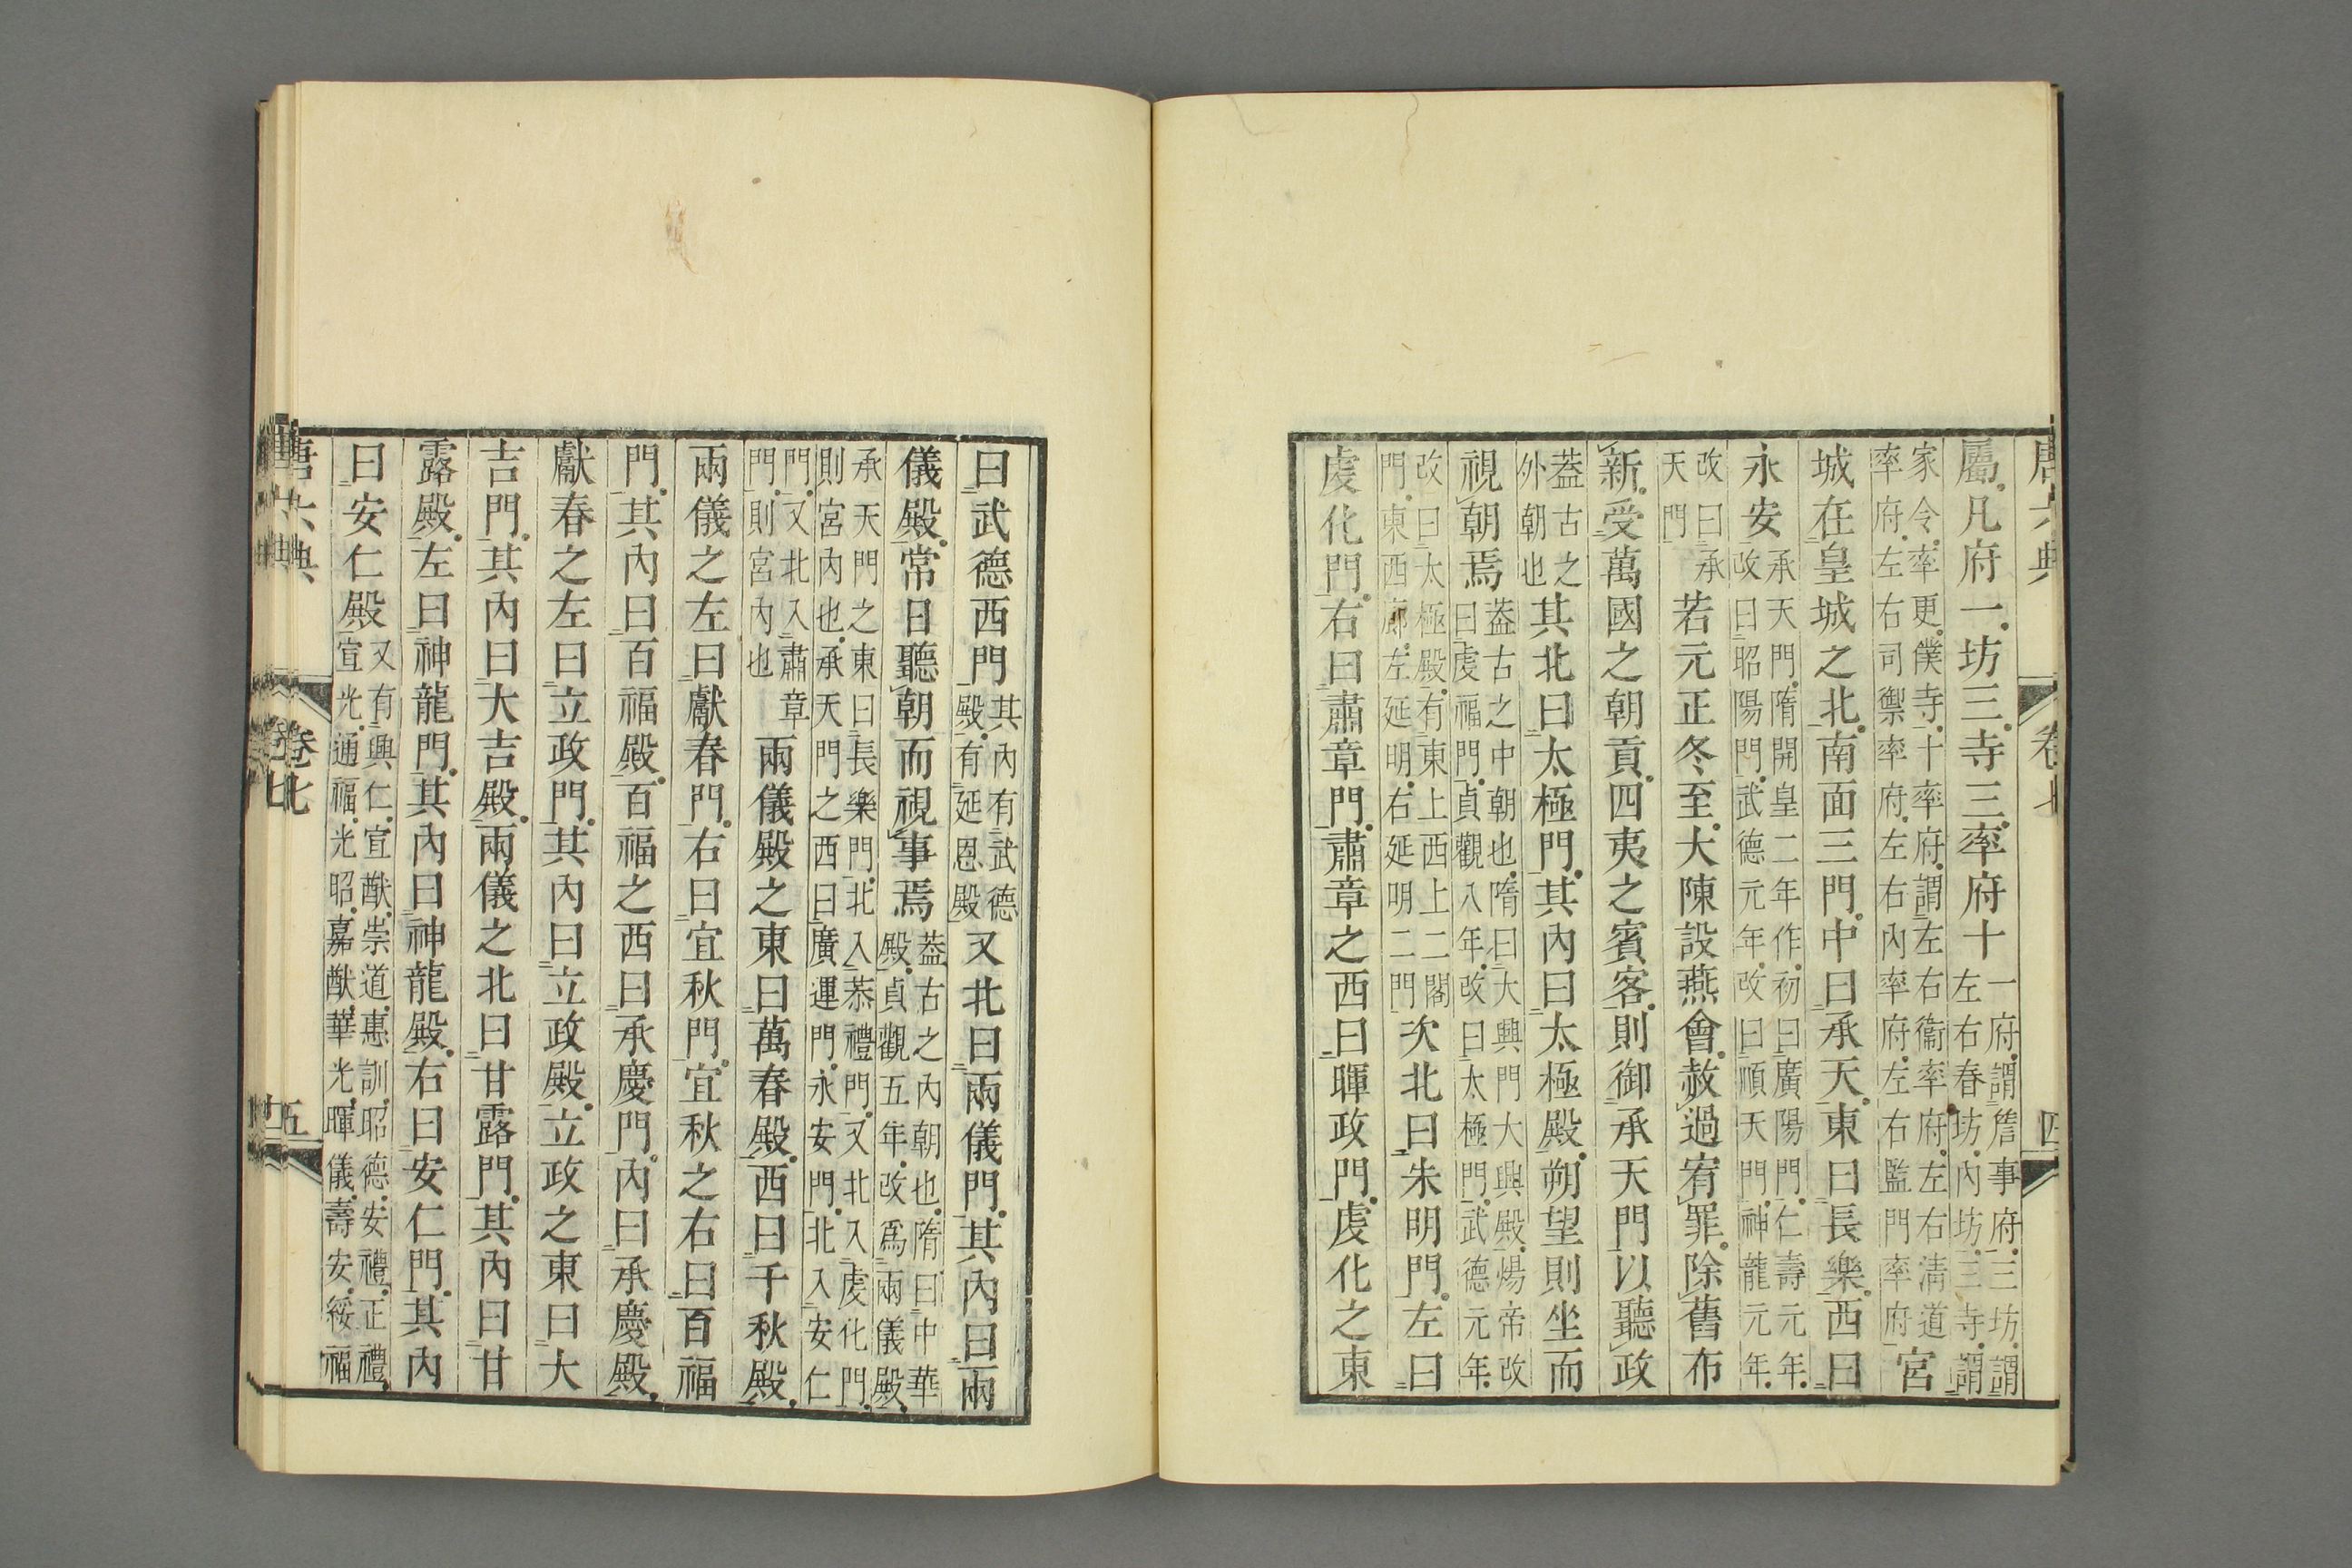 唐六典 卷七 四
屬。凡府一。坊三。寺三。率府十
一府。謂詹事府。三坊。謂
左右春坊。內坊。三寺。謂
家令。率更。僕寺。十率府。謂左右衞率府。左右清道
率府。左右司禦率府。左右內率府。左右監門率府
宮
城在皇城之北。南面三門。中曰承天。東曰長樂。西曰
永安
承天門。隋開皇二年作。初曰廣陽門。仁壽元年。
改曰昭陽門。武德元年。改曰順天門。神龍元年。
改曰承
天門
若元正冬至。大陳設燕會。赦過宥罪。除舊布
新。受萬國之朝貢。四夷之賓客。則御承天門以聽政
蓋古之
外朝也
其北曰太極門。其內曰太極殿。朔望則坐而
視朝焉
蓋古之中朝也。隋曰大興門大興殿。煬帝改
曰虔福門。貞觀八年。改曰太極門。武德元年。
改曰太極殿。有東上西上二閤
門。東西廊。左延明。右延明二門
次北曰朱明門。左曰
虔化門。右曰肅章門。肅章之西曰暉政門。虔化之東
曰武德西門
其內有武德
殿。有延恩殿
又北曰兩儀門。其內曰兩
儀殿。常日聽朝而視事焉
蓋古之內朝也。隋曰中華
殿。貞觀五年。改爲兩儀殿。
承天門之東曰長樂門。北入恭禮門。又北入虔化門。
則宮內也。承天門之西曰廣運門。永安門。北入安仁
門。又北入肅章
門。則宮內也
兩儀殿之東曰萬春殿。西曰千秋殿。
兩儀之左曰獻春門。右曰宜秋門。宜秋之右曰百福
門。其內曰百福殿。百福之西曰承慶門。內曰承慶殿。
獻春之左曰立政門。其內曰立政殿。立政之東曰大
吉門。其內曰大吉殿。兩儀之北曰甘露門。其內曰甘
露殿。左曰神龍門。其內曰神龍殿。右曰安仁門。其內
曰安仁殿
又有興仁。宣猷。崇道。惠訓。昭德。安禮。正禮。
宣光。通福。光昭。嘉猷。華光。暉儀。壽安。綏福
唐六典 卷七 五